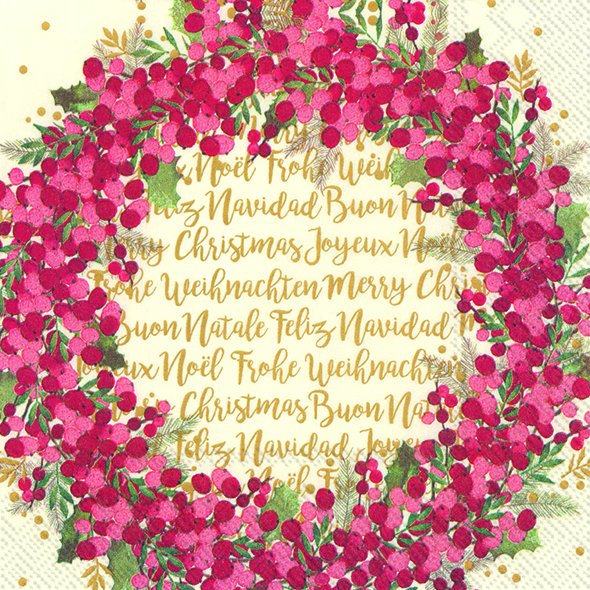 Merry
Noël Frohe Weih
Feliz Navidad Buon Na
rry Christmas Joyeux Noël
Frohe Weihnachten Merry Chri
Buon Natale Feliz Navidad M
Joyeux Noël Frohe Weihnachten
Christmas Buon Nat
Feliz Navidad Joyeu
Noël Fro